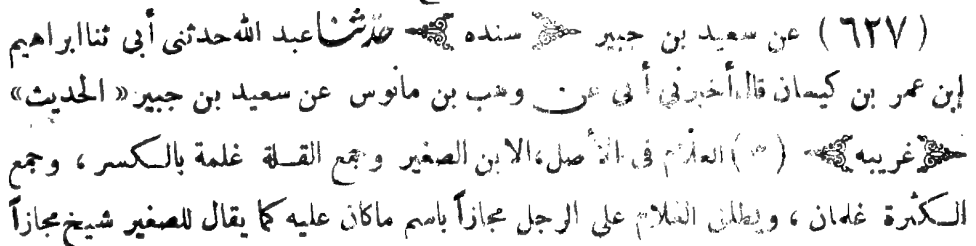 (٦٢٧) عن سعيد بن جبير ﴿ سنده ﴾ حدثنا عبد الله حدثنى أبى ثنا ابراهيم
ابن عمر بن كيسان قال أخبرنى أبى عن وهب بن مانوس عن سعيد بن جبير « الحديث »
﴿ غريبه ﴾ (٣) الغلام فى الأصل، الابن الصغير وجمع القلة غلمة بالكسر ، وجمع
الكثرة غلمان ، ويطلق الغلام على الرجل مجازاً باسم ماكان عليه كما يقال للصغير شيخ مجازاً